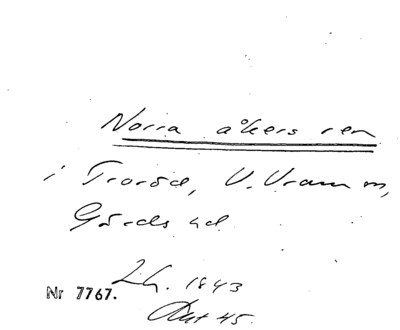 Norra åkers ren
i Troröd, V. Vram sn,
Gärds hd.
LG. 1843
Nr 7767.
Akt 45.